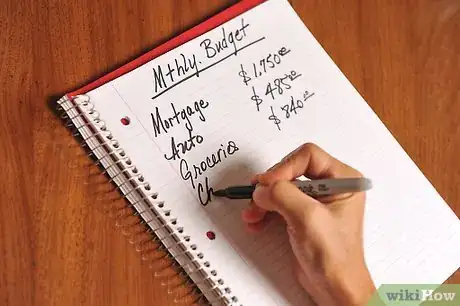 Mthly. Budget
Mortgage $1,750.00
Auto $485.00
Groceries $840.00
Ch
wikiHow